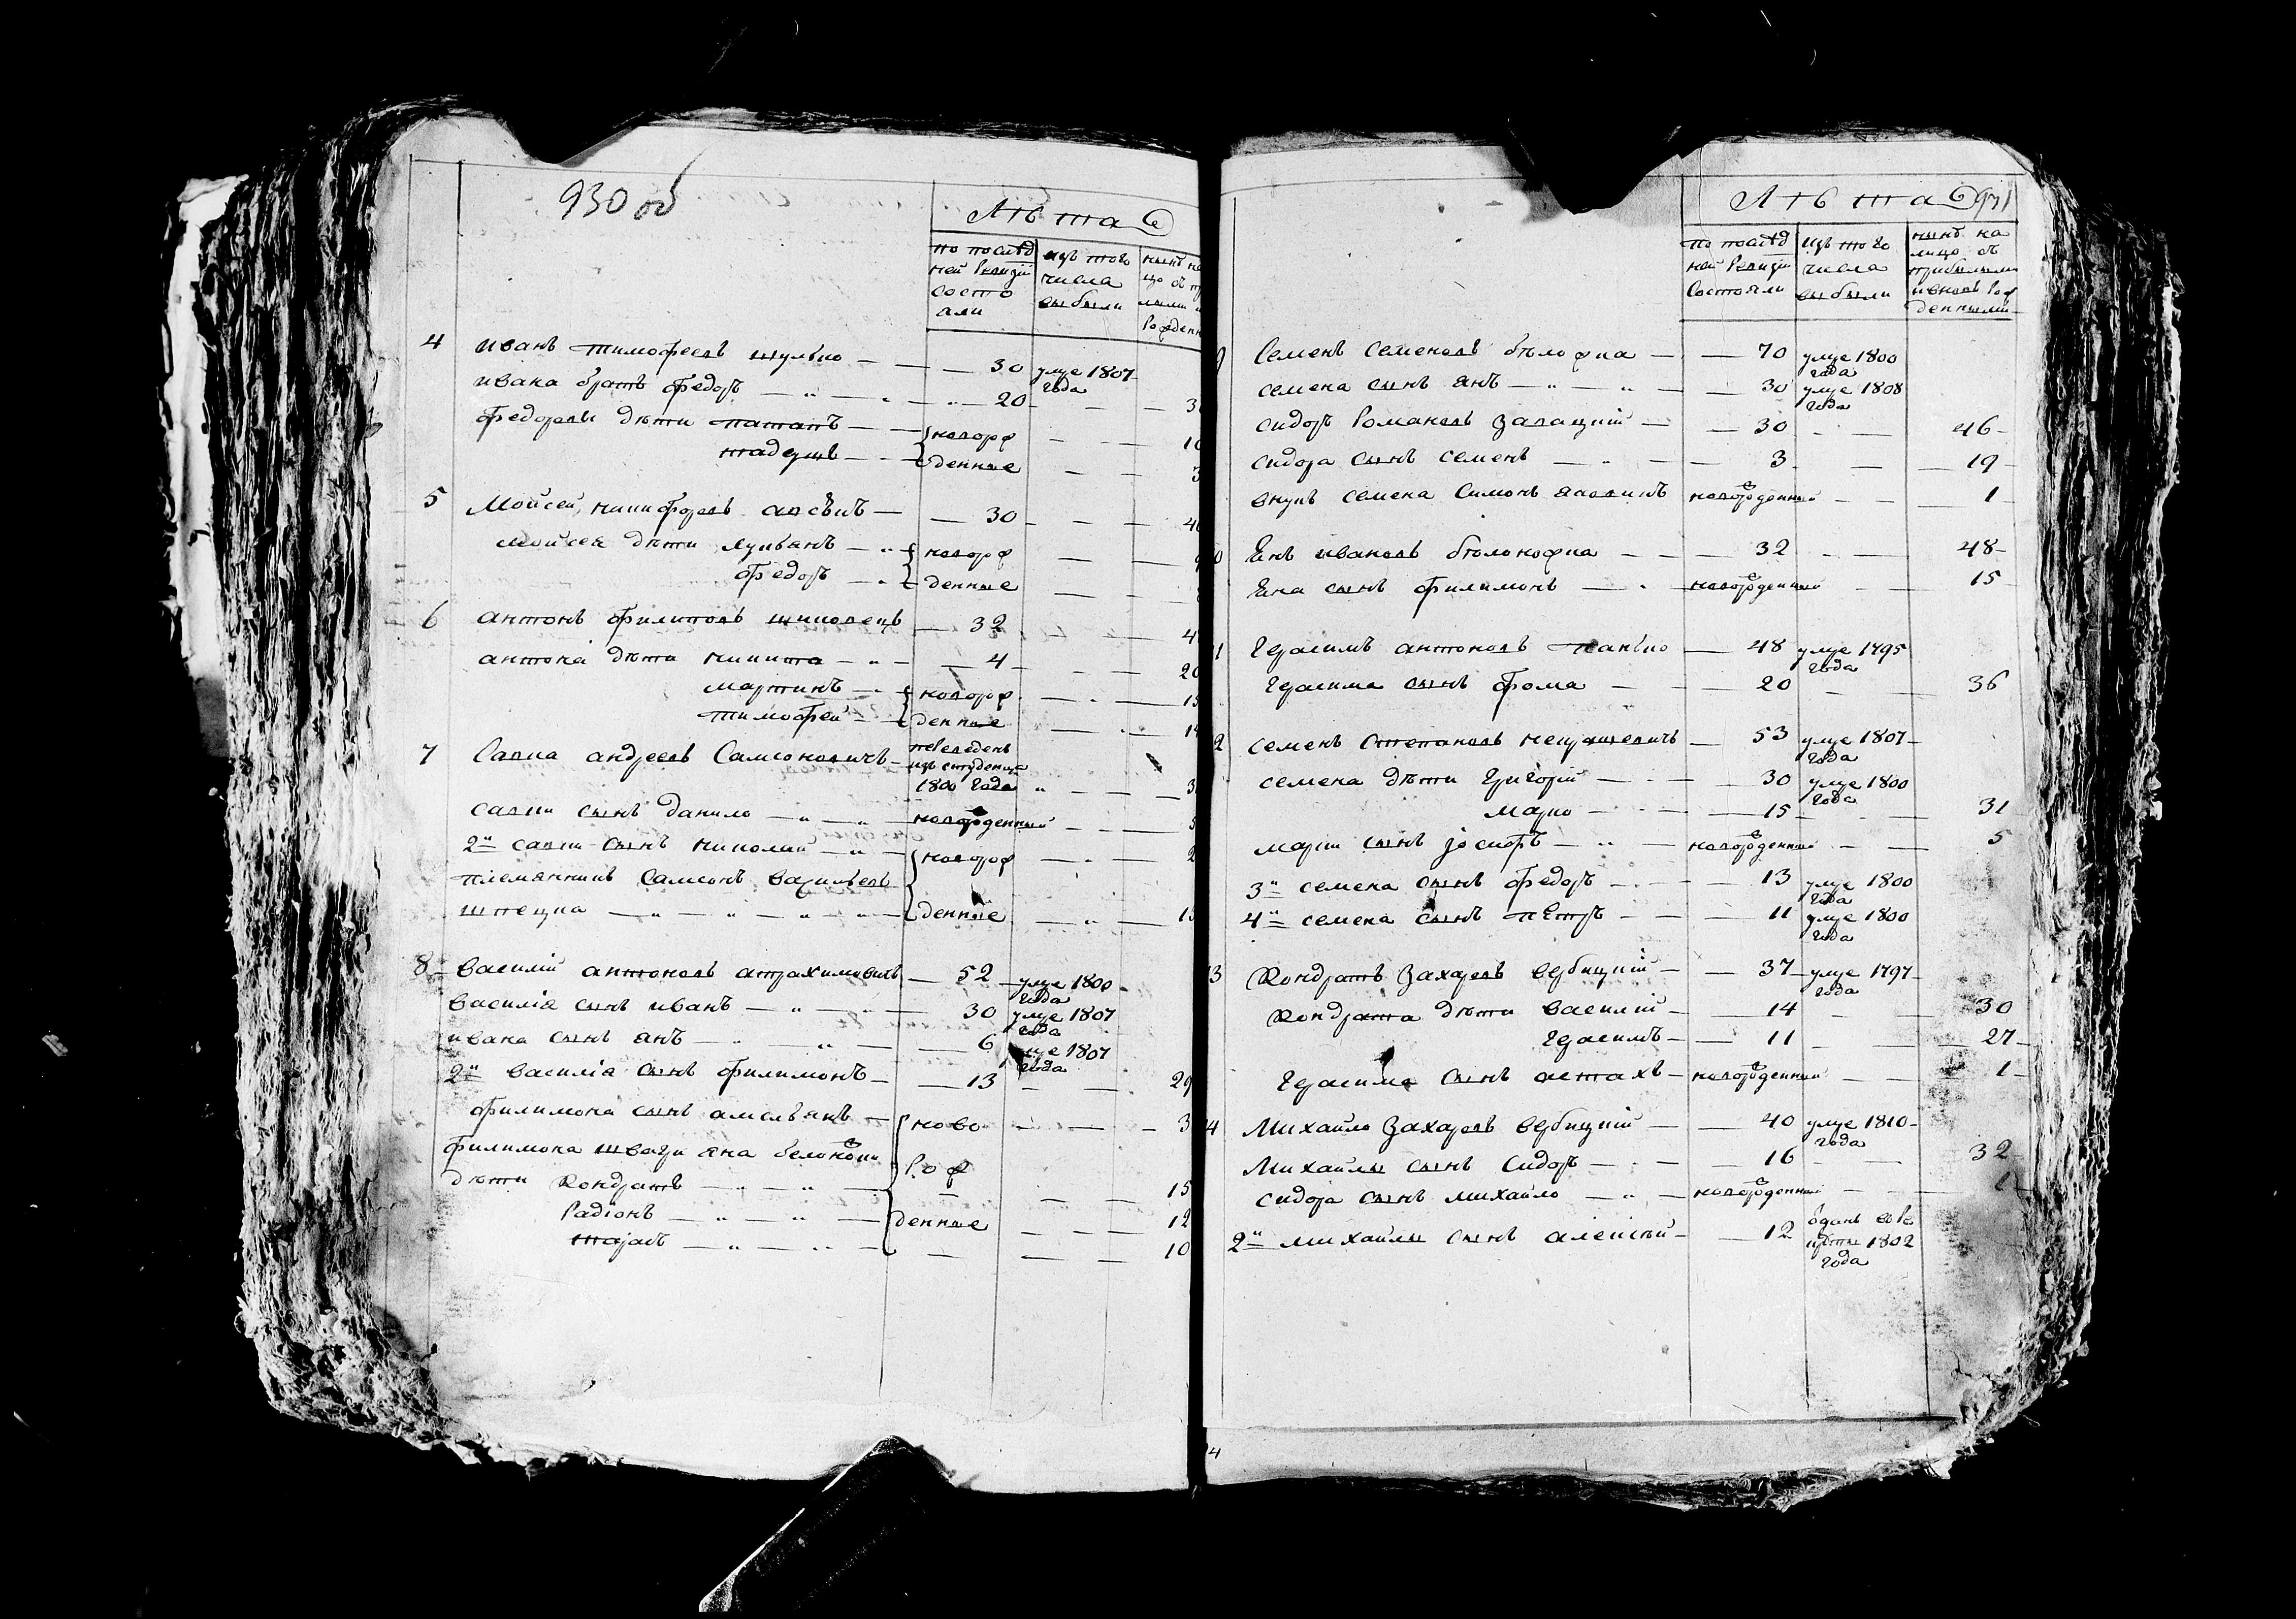 930 об
Лѣта
по послѣд изъ того нынѣ на
ней ревизіи числа
состо выбыли
яли
4 иванъ тимофеевъ шулько — 30 умре 1807
года
ивана братъ федоръ — 20
федоровы дѣти патапъ — новорож
тадеушъ — денные
5 Мойсей никифоровъ — 30
мойсея дѣти лукьянъ — новорож
федоръ — денные
6 антонъ филиповъ шиповецъ — 32
антона дѣти никита — 4
мартинъ — новорож
тимофей — денные
7 Савка андреевъ Самсоновичъ — переведенъ
изъ студенца
1800 года
савки сынъ данило — новорожденный
2й савки сынъ николай — новорож
племянникъ Самсонъ василевъ
шпецка — денные
8 василій антоновъ атрахимовичъ — 52 умре 1800
года
василія сынъ иванъ — 30 умре 1807
года
ивана сынъ янъ — 6 умре 1807
года
2й василія сынъ филимонъ — 13 — 29
филимона сынъ амельянъ — ново — 3
филимона швагри яна белоножки
рож
дѣти Кондратъ — 15
Радіонъ — денные — 12
тарасъ — 10
Лѣта 931
по послѣд изъ того нынѣ на
ней ревизіи числа лицо съ
состояли выбыли прибылыми
и вновь рож
денными
Семенъ Семеновъ бѣлофка — 70 умре 1800
года
семена сынъ янъ — 30 умре 1808
года
сидоръ Романовъ Завацкій — 30 — 46
сидора сынъ семенъ — 3 — 19
внукъ семена Симонъ новорожденный — 1
Янъ ивановъ бѣлоножка — 32 — 48
Яна сынъ филимонъ — новорожденный — 15
1 Герасимъ антоновъ панько — 48 умре 1795
года
Герасима сынъ фома — 20 — 36
2 семенъ Степановъ — 53 умре 1807
года
семена дѣти Григорій — 30 умре 1800
года
марко — 15 — 31
марки сынъ іосифъ — новорожденный — 5
3й семена сынъ федоръ — 13 умре 1800
года
4й семена сынъ пётръ — 11 умре 1800
года
3 Кондратъ Захаровъ вербицкій — 37 умре 1797
года
Кондрата дѣти василій — 14 — 30
Герасимъ — 11 — 27
Герасима сынъ астахъ — новорожденный — 1
4 Михайло Захаровъ вербицкій — 40 умре 1810
года
Михайлы сынъ Сидоръ — 16 — 32
сидора сынъ михайло — новорожденный
2й михайлы сынъ алексѣй — 12 отданъ въ ре
круты 1802
года
4